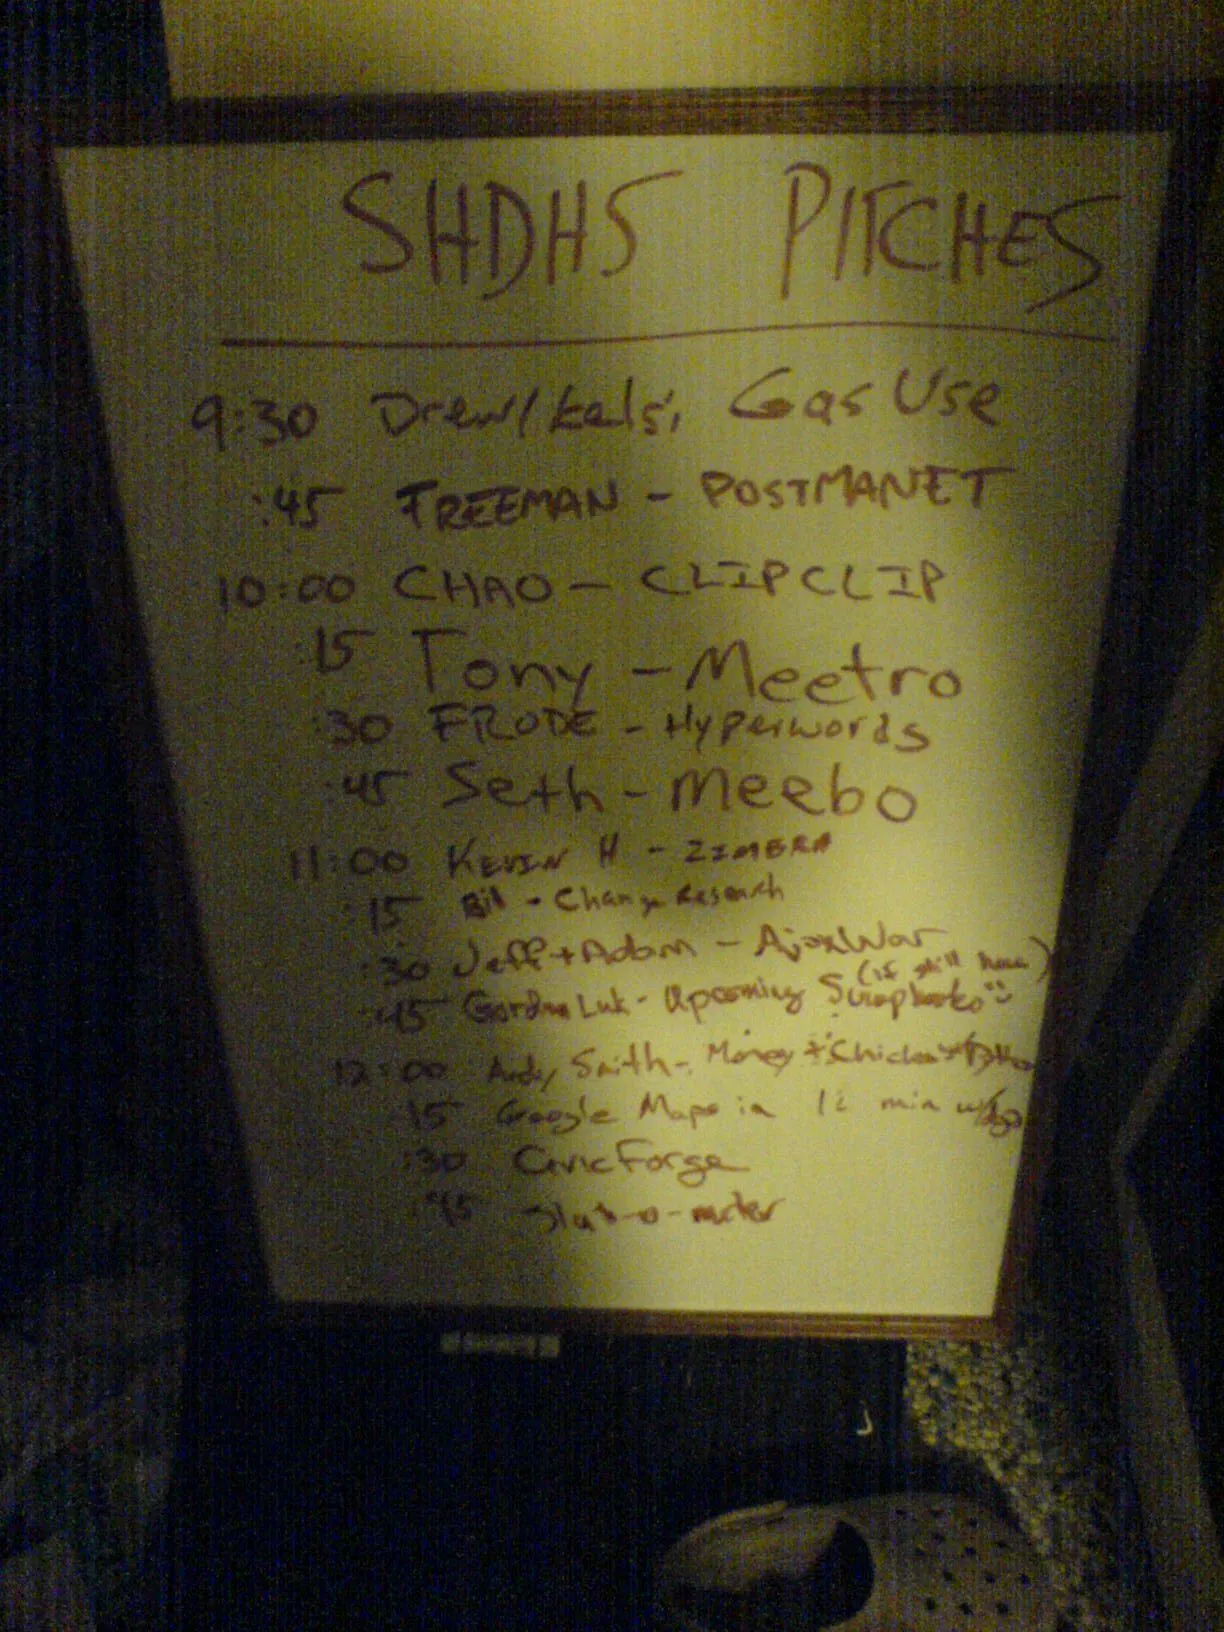 SHDH5 PITCHES
9:30 Drew/kels, Gas Use
:45 FREEMAN - POSTMANET
10:00 CHAO - CLIPCLIP
:15 Tony - Meetro
:30 FRODE - Hyperwords
:45 Seth - meebo
11:00 KEVIN H - ZIMBRA
:15 Bill - Change Research
:30 Jeff + Adam - AjaxWar
:45 Gordon Luk - Upcoming (if still here)
12:00 Andy Smith - Money + Chicken
15 Google Maps in min
:30 CivicForge
:45